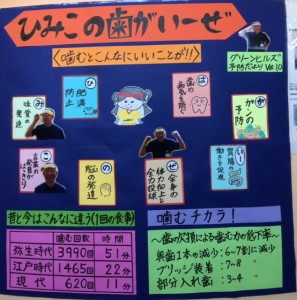 ひみこの歯がいーぜ
〈噛むとこんなにいいことが!!〉
グリーンヒルズ
予防だより Vol.10
ひ
肥満
防止
み
味覚の
発達
こ
言葉の
発音が
はっきり
の
脳の
発達
は
歯の
病気を
防ぐ
が
ガンの
予防
い
胃腸の
働きを促進
ぜ
全身の
体力向上と
全力投球
昔と今はこんなに違う(1回の食事)
噛む回数 時間
弥生時代 3990回 51分
江戸時代 1465回 22分
現代 620回 11分
噛むチカラ!
～歯の欠損による噛む力の低下率～
奥歯1本の減少：6～7割に減少
ブリッジ装着：7～8 〃
部分入れ歯：3～4 〃